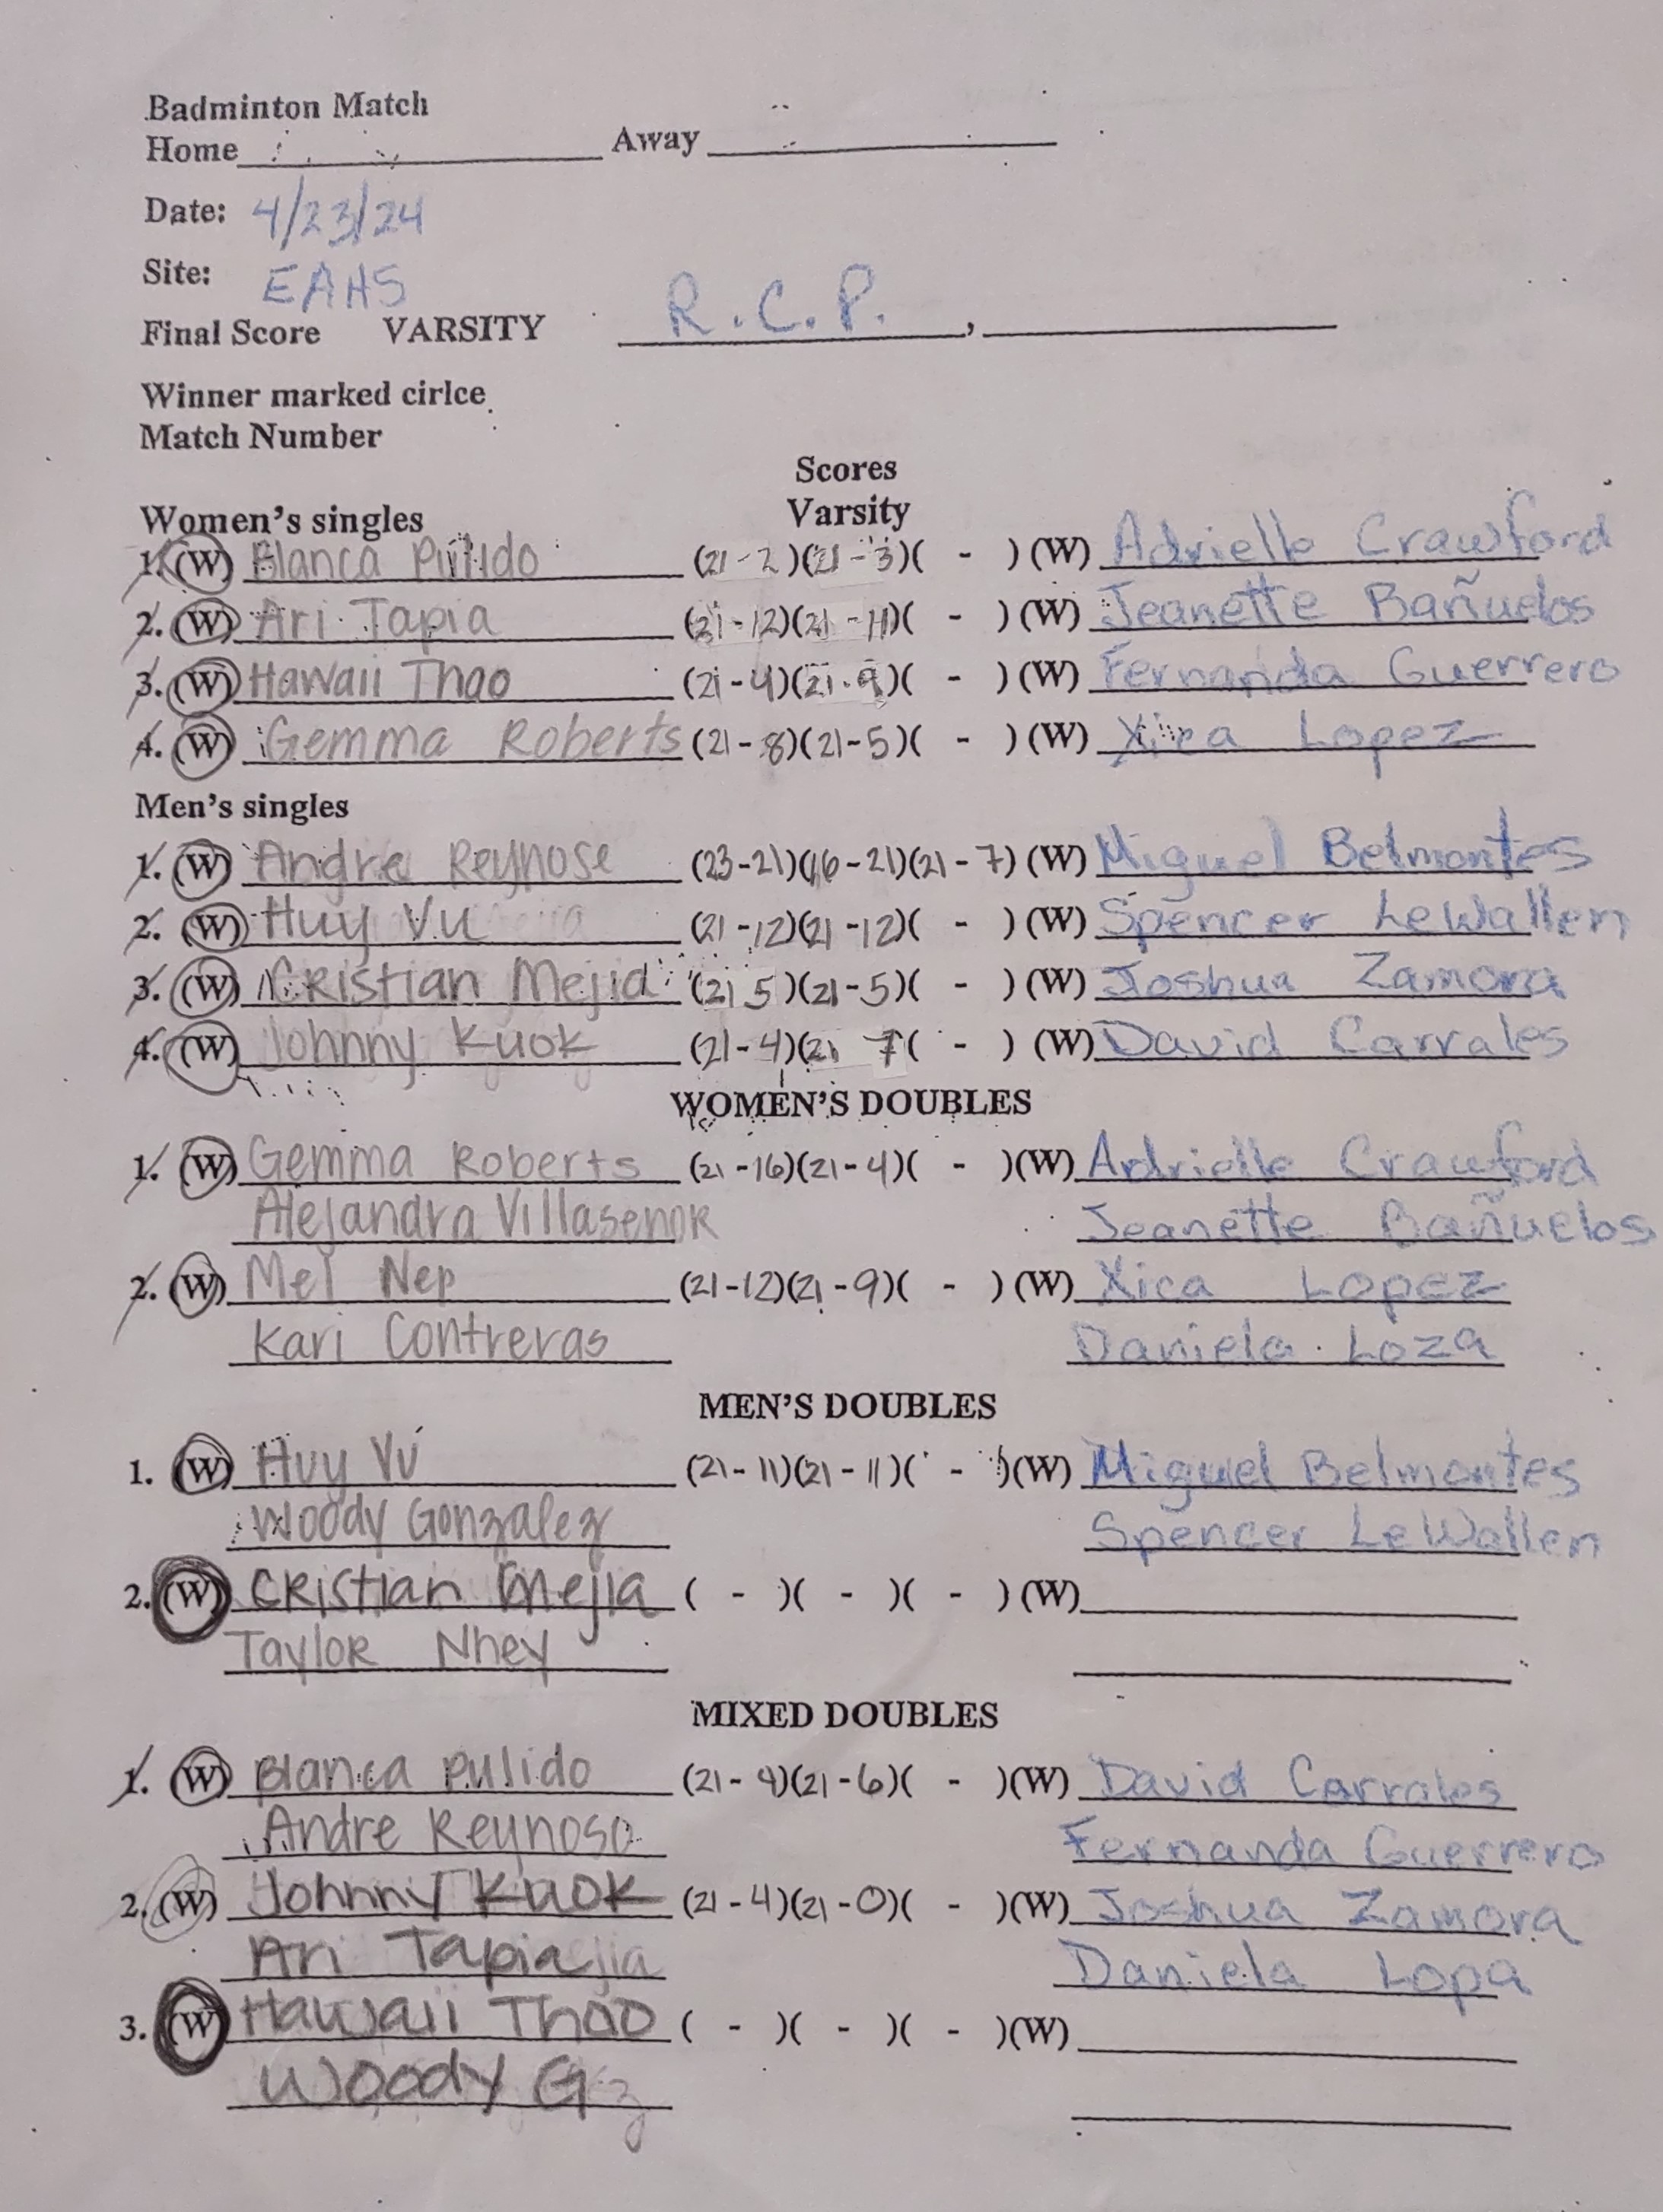 Badminton Match
Home Away
Date: 4/23/24
Site: EAHS
Final Score VARSITY R.C.P. ,
Winner marked cirlce
Match Number
Scores
Women's singles Varsity
1. (W) Blanca Pulido (21-2)(21-3)( - ) (W) Adrielle Crawford
2. (W) Ari Tapia (21-12)(21-11)( - ) (W) Jeanette Bañuelos
3. (W) Hawaii Thao (21-4)(21-9)( - ) (W) Fernanda Guerrero
4. (W) Gemma Roberts (21-8)(21-5)( - ) (W) Xica Lopez
Men's singles
1. (W) Andre Reynose (23-21)(16-21)(21-7) (W) Miguel Belmontes
2. (W) Huy Vu (21-12)(21-12)( - ) (W) Spencer LeWallen
3. (W) Cristian Mejia (21 5)(21-5)( - ) (W) Joshua Zamora
4. (W) Johnny Kuok (21-4)(21 7( - ) (W) David Carrales
WOMEN'S DOUBLES
1. (W) Gemma Roberts (21-16)(21-4)( - )(W) Adrielle Crawford
Alejandra Villasenor Jeanette Bañuelos
2. (W) Mel Nep (21-12)(21-9)( - ) (W) Xica Lopez
Kari Contreras Daniela Loza
MEN'S DOUBLES
1. (W) Huy Vu (21-11)(21-11)( - )(W) Miguel Belmontes
Woody Gonzalez Spencer LeWallen
2. (W) Cristian Mejia ( - )( - )( - ) (W)
Taylor Nhey
MIXED DOUBLES
1. (W) Blanca Pulido (21-4)(21-6)( - )(W) David Carrales
Andre Reynoso Fernanda Guerrero
2. (W) Johnny Kuok (21-4)(21-0)( - )(W) Joshua Zamora
Ari Tapia Daniela Lopa
3. (W) Hawaii Thao ( - )( - )( - )(W)
Woody G